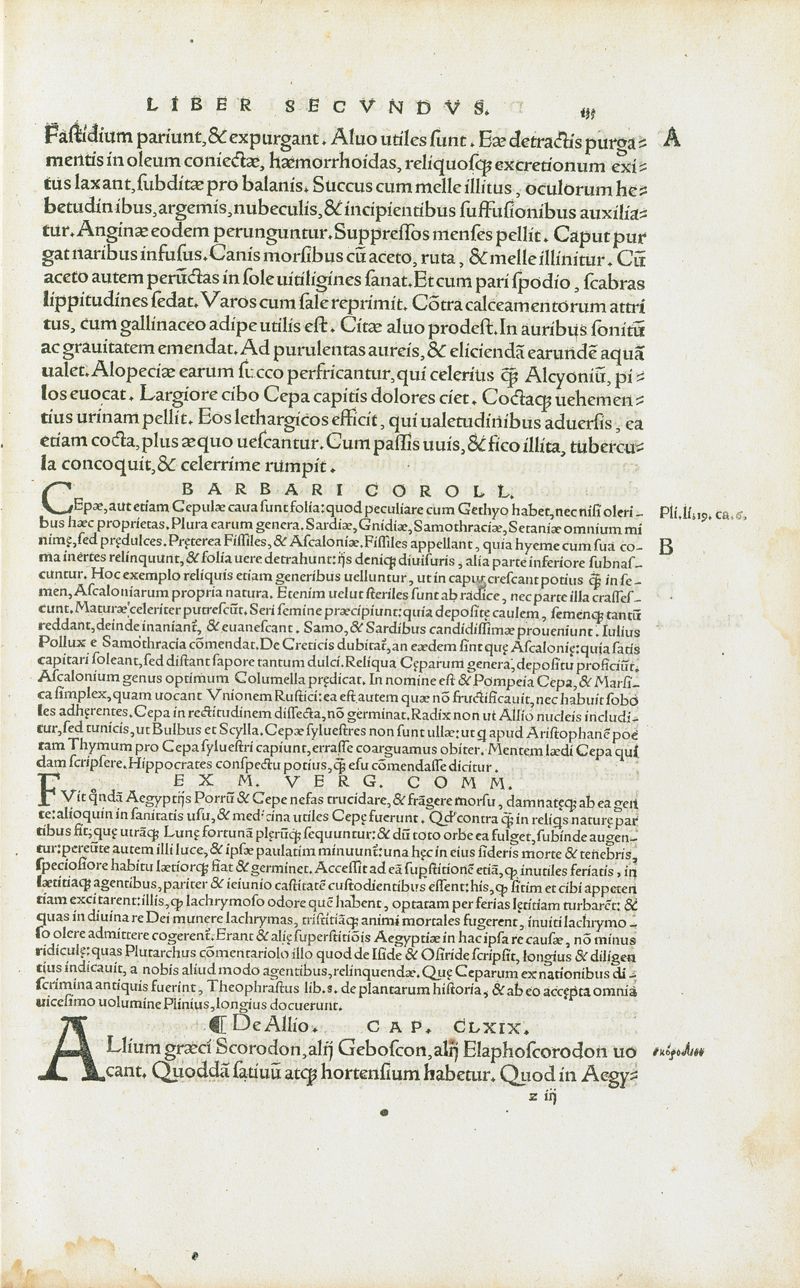 LIBER SECVNDVS.
Fastidium pariunt, & expurgant. Aluo utiles sunt. Eæ detractis purga⸗ A
mentis in oleum coniectæ, hæmorrhoidas, reliquosq; excretionum exi⸗
tus laxant, subditæ pro balanis. Succus cum melle illitus, oculorum he⸗
betudinibus, argemis, nubeculis, & incipientibus suffusionibus auxilia⸗
tur. Anginæ eodem perunguntur. Suppressos menses pellit. Caput pur
gat naribus infusus. Canis morsibus cū aceto, ruta, & melle illinitur. Cū
aceto autem perūctas in sole uitiligines sanat. Et cum pari spodio, scabras
lippitudines sedat. Varos cum sale reprimit. Cōtra calceamentorum attri
tus, cum gallinaceo adipe utilis est. Citæ aluo prodest. In auribus sonitū
ac grauitatem emendat. Ad purulentas aureis, & eliciendā earundē aquā
ualet. Alopeciæ earum succo perfricantur, qui celerius q̄ Alcyoniū, pi⸗
los euocat. Largiore cibo Cepa capitis dolores ciet. Coctaq; uehemen⸗
tius urinam pellit. Eos lethargicos efficit, qui ualetudinibus aduersis, ea
etiam cocta, plus æquo uescantur. Cum passis uuis, & fico illita, tubercu⸗
la concoquit, & celerrime rumpit.
BARBARI COROLL.
CEpæ, aut etiam Cepulæ caua sunt folia: quod peculiare cum Gethyo habet, nec nisi oleri⸗ Pli. li. 19. ca. 6,
bus hæc proprietas. Plura earum genera. Sardiæ, Gnidiæ, Samothraciæ, Setaniæ omnium mi
nimę, sed prędulces. Pręterea Fissiles, & Ascaloniæ. Fissiles appellant, quia hyeme cum sua co⸗ B
ma inertes relinquunt, & folia uere detrahunt: ijs deniq; diuisuris, alia parte inferiore subnas⸗
cuntur. Hoc exemplo reliquis etiam generibus uelluntur, ut in caput crescant potius q̄ in se⸗
men, Ascaloniarum propria natura. Etenim uelut steriles sunt ab radice, nec parte illa crasses⸗
cunt. Maturæ celeriter putrescūt. Seri semine præcipiunt: quia depositę caulem, semenq; tantū
reddant, deinde inaniant̄, & euanescant. Samo, & Sardibus candidissimæ proueniunt. Iulius
Pollux e Samothracia cōmendat. De Creticis dubitat̄, an eædem sint quę Ascalonię: quia satis
capitari soleant, sed distant sapore tantum dulci. Reliqua Cęparum genera, depositu proficiūt.
Ascalonium genus optimum Columella prędicat. In nomine est & Pompeia Cepa, & Marsi⸗
ca simplex, quam uocant Vnionem Rustici: ea est autem quæ nō fructificauit, nec habuit sobo
les adhęrentes. Cepa in rectitudinem dissecta, nō germinat. Radix non ut Allio nucleis includi⸗
tur, sed tunicis, ut Bulbus et Scylla. Cepæ syluestres non sunt ullæ: ut q apud Aristophanē poe
tam Thymum pro Cepa syluestri capiunt, errasse coarguamus obiter. Mentem lædi Cepa qui
dam scripsere. Hippocrates conspectu potius, q̄ esu cōmendasse dicitur.
EX M. VERG. COMM.
FVit q̄ndā Aegyptijs Porrū & Cepe nefas trucidare, & frāgere morsu, damnateq; ab ea gen
te: alioquin in sanitatis usu, & medicina utiles Cepę fuerunt. Qd' contra q̄ in reliqs naturę par
tibus fit; quę utrāq; Lunę fortunā plerūq; sequuntur: & dū toto orbe ea fulget, subinde augen⸗
tur: pereūte autem illi luce, & ipsæ paulatim minuunt̄: una hęc in eius sideris morte & tenebris,
speciosiore habitu lætiorq; fiat & germinet. Accessit ad eā supstitionē etiā, q; inutiles feriatis, in
lætitiaq; agentibus, pariter & ieiunio castitatē custodientibus essent: his, q; sitim et cibi appeten
tiam excitarent: illis, q; lachrymoso odore quē habent, optatam per ferias lętitiam turbarēt: &
quas in diuina re Dei munere lachrymas, tristitiāq; animi mortales fugerent, inuiti lachrymo⸗
so olere admittere cogerent̄. Erant & alię superstitiōis Aegyptiæ in hac ipsa re causæ, nō minus
ridiculę: quas Plutarchus cōmentariolo illo quod de Iside & Osiride scripsit, longius & diligen
tius indicauit, a nobis aliud modo agentibus, relinquendæ. Quę Ceparum ex nationibus di⸗
scrimina antiquis fuerint, Theophrastus lib. s. de plantarum historia, & ab eo accepta omnia
uicesimo uolumine Plinius, longius docuerunt.
¶ De Allio. CAP. CLXIX.
ALlium græci Scorodon, alij Geboscon, alij Elaphoscorodon uo σκόροδον
cant. Quoddā satiuū atq; hortensium habetur. Quod in Aegy⸗
z iij